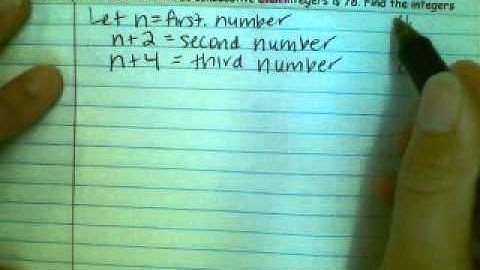 consecutive even integers is 78. Find the integers
Let n = first number
n+2 = second number
n+4 = third number